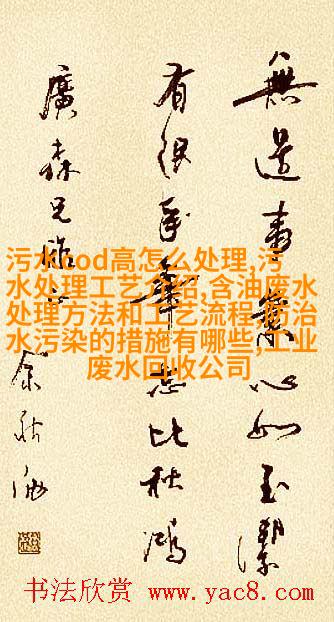 無事縈心如玉潔
有筆志比秋鴻
廣森兄雅正
余秋雨
污水cod高怎么处理,污
水处理工艺介绍,含油废水
处理方法和工艺流程,防治
水污染的措施有哪些,工业
废水回收公司
书法欣赏 www.yac8.com